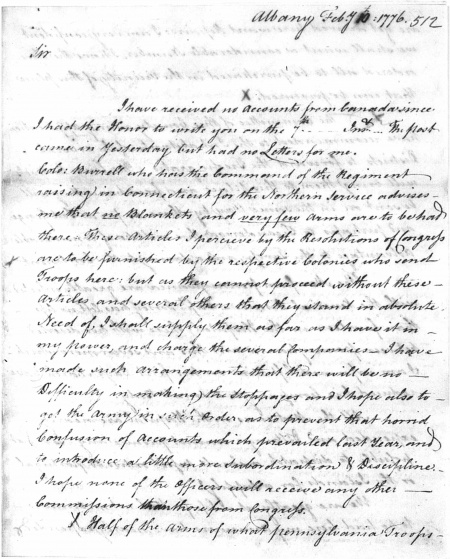 Albany Feby 10: 1776. 512
Sir
I have received no Accounts from Canada since
I had the Honor to write you on the 7th Inst. The post
came in Yesterday but had no Letters for me.
Colo: Burrell who has the Command of the Regiment
raising in Connecticut for the Northern Service advises
me that no Blankets and very few Arms are to be had
there. These Articles I percieve by the Resolutions of Congress
are to be furnished by the respective Colonies who send
Troops here: but as they cannot proceed without these
Articles and several others that they stand in absolute
Need of, I shall supply them as far as I have it in
my power, and charge the several Companies I have
made such arrangements that there will be no
Difficulty in making the Stoppages and I hope also to
get the Army in such Order, as to prevent that horrid
Confusion of Accounts which prevailed last Year, and
to introduce a little more Subordination & Discipline
I hope none of the Officers will receive any other
Commissions than those from Congress.
X Half of the Arms of what pennsylvania Troops